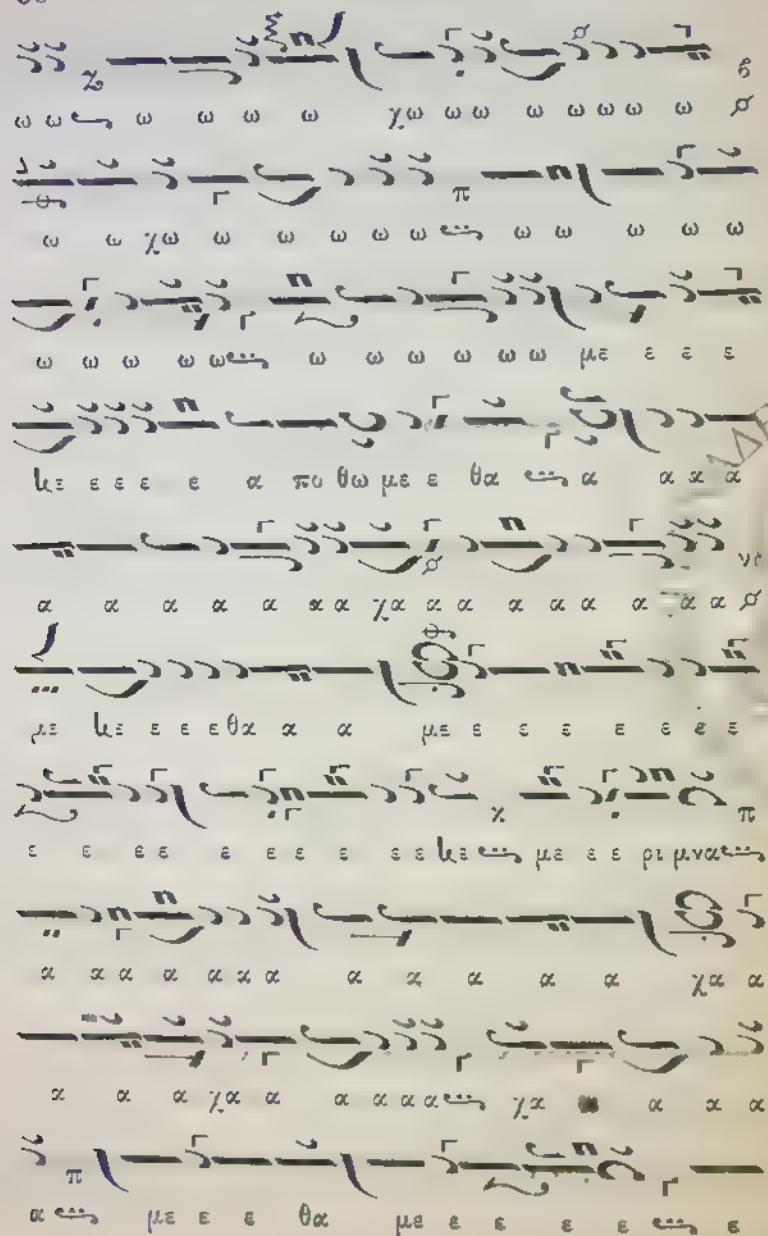 ω ω ω ω ω ω χω ω ω ω ω ω ω ω
ω ω χω ω ω ω ω ω ω ω ω ω ω
ω ω ω ω ω ω ω ω ω ω ω με ε ε ε
κε ε ε ε ε α πο θω με ε θα α α α α
α α α α α α α χα α α α α α α α α
με κε ε ε ε θα α α με ε ε ε ε ε ε ε
ε ε ε ε ε ε ε ε ε ε κε με ε ε ρι μνα
α α α α α α α α α α α α χα α
α α α χα α α α α α χα α α α
α με ε ε ε θα με ε ε ε ε ε